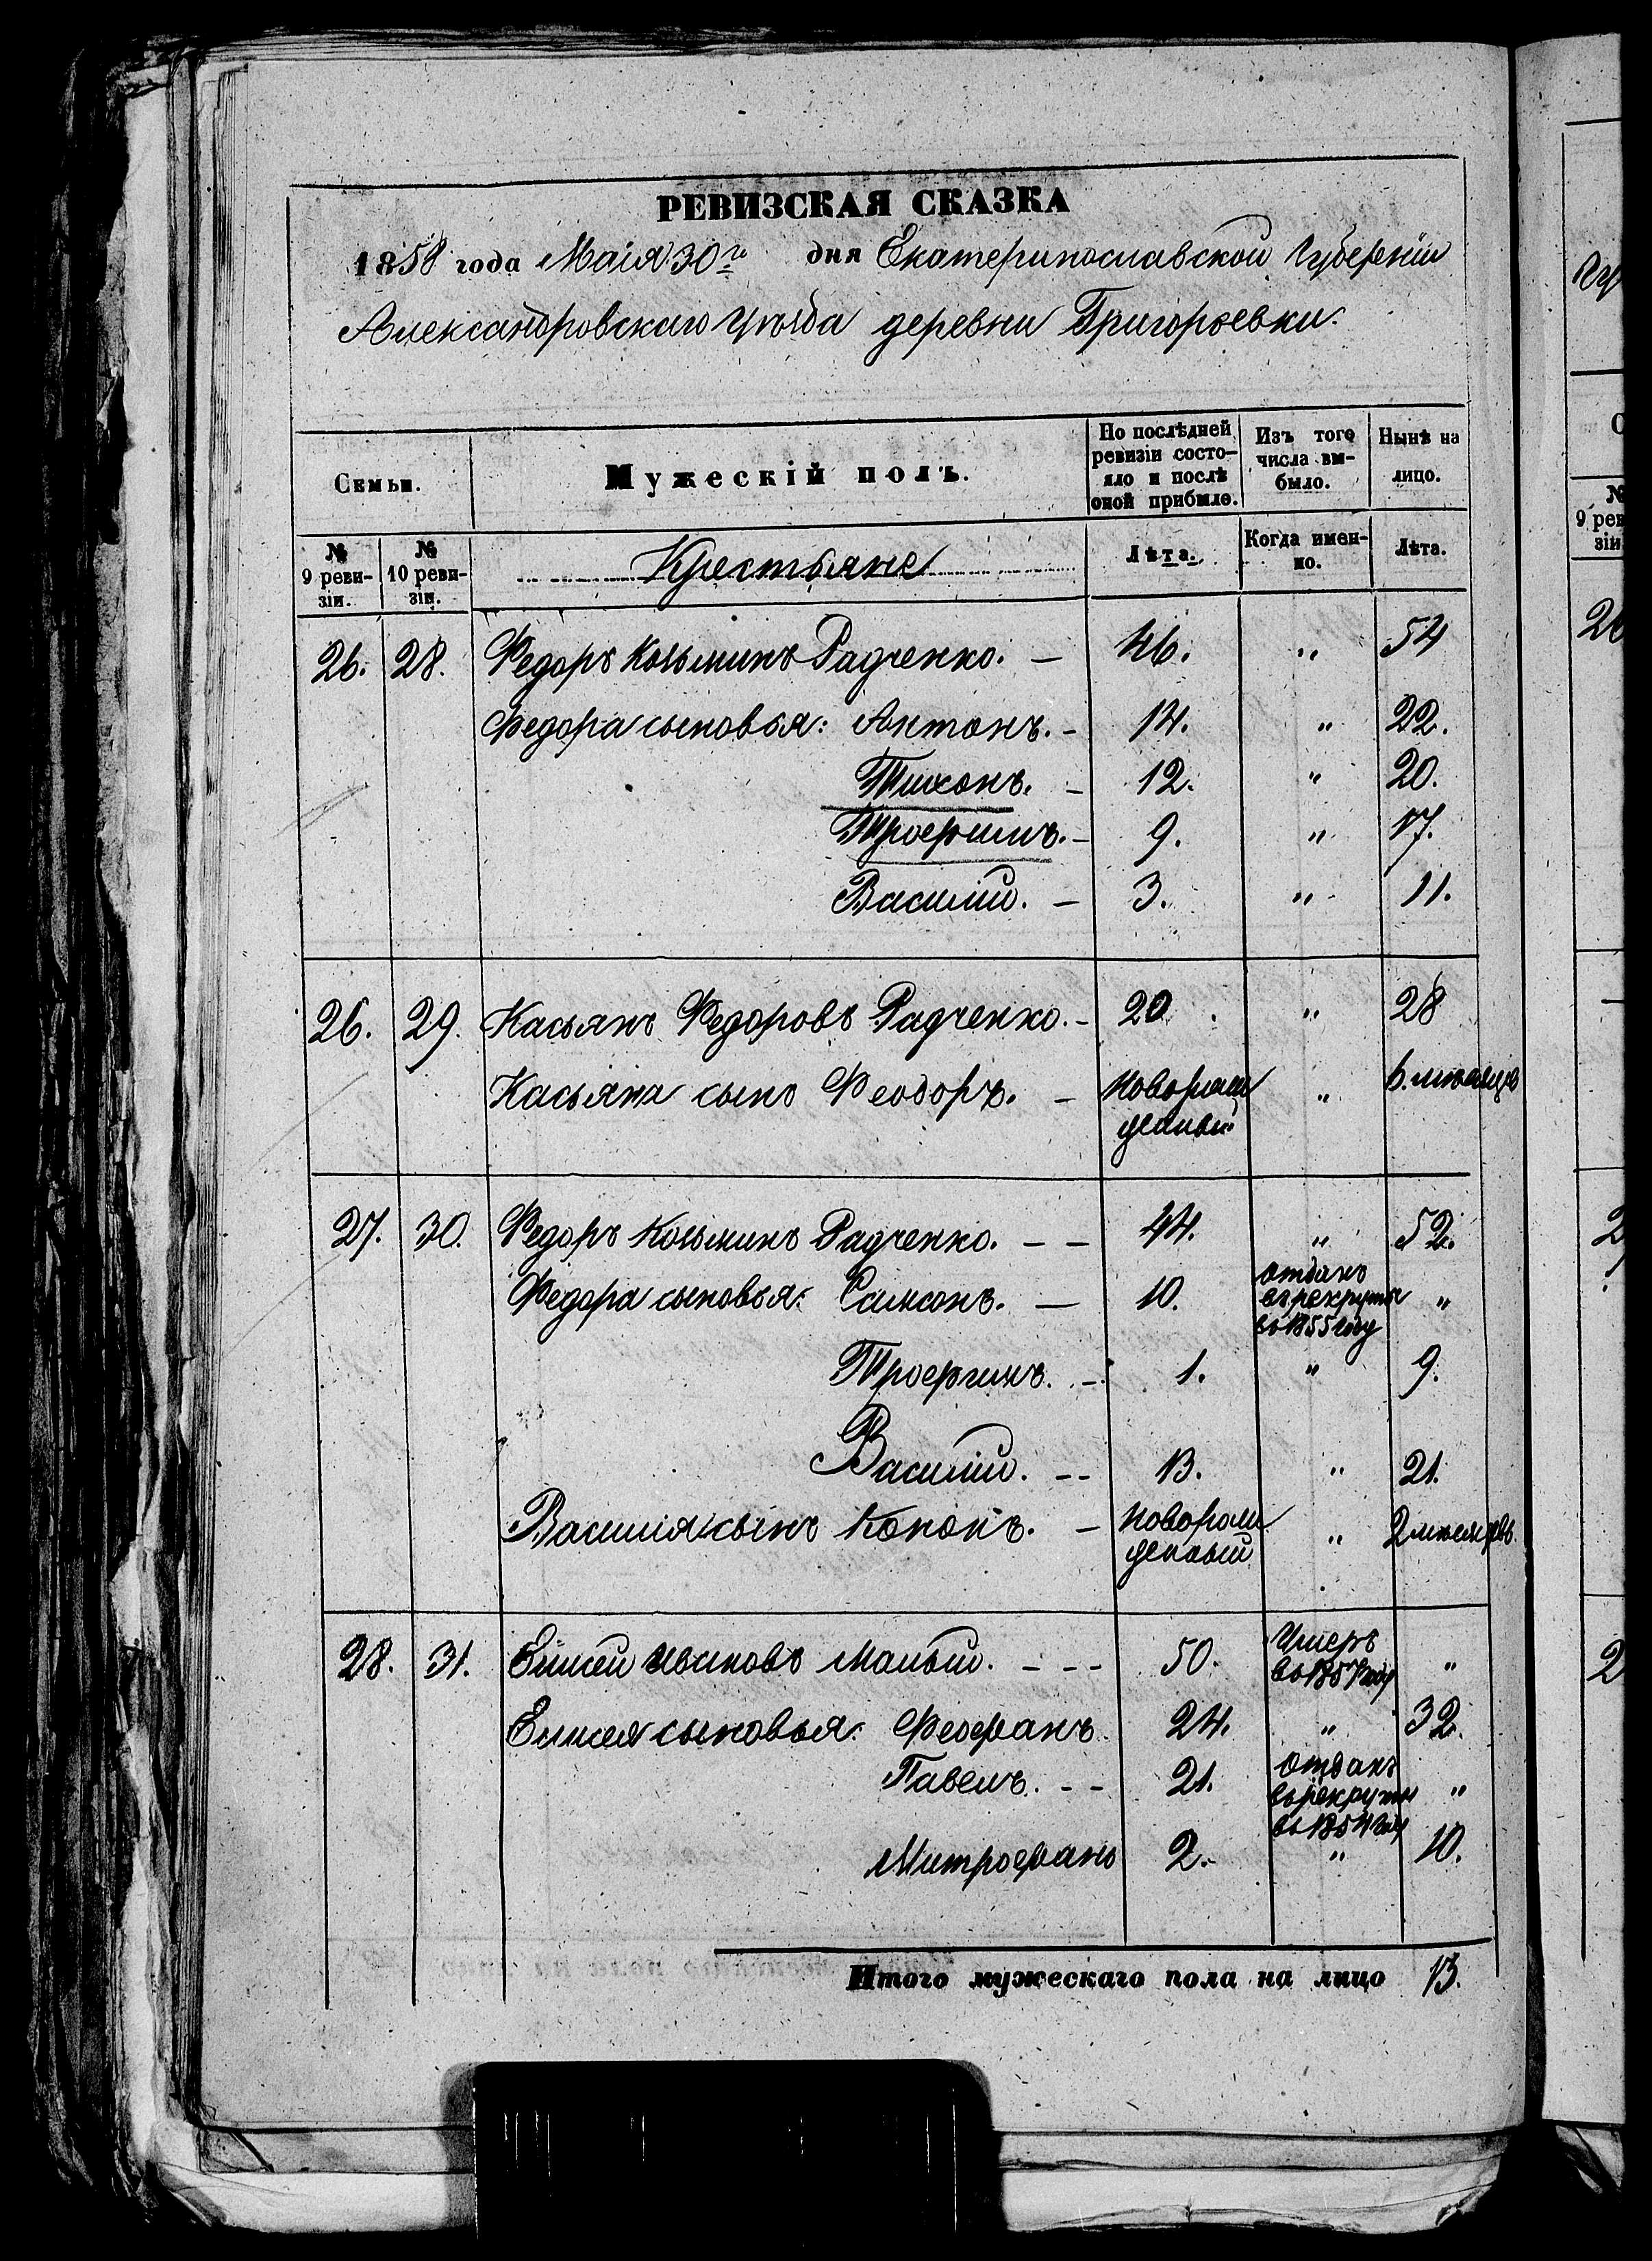 РЕВИЗСКАЯ СКАЗКА
1858 года Маія 30го дня Екатеринославской Губерніи
Александровскаго Уѣзда деревни Григорьевки.
Семьи.
Мужескій полъ.
По послѣдней ревизіи состояло и послѣ оной прибыло.
Изъ того числа выбыло.
Нынѣ на лицо.
№ 9 ревизіи.
№ 10 ревизіи.
Крестьяне
Лѣта.
Когда именно.
Лѣта.
26. 28. Федоръ Козьминъ Радченко. — 46. " 54
Федора сыновья: Антонъ. - 14. " 22.
Тихонъ. - 12. " 20.
Трофимъ. - 9. " 17.
Василій. — 3. " 11.
26. 29. Касьянъ Федоровъ Радченко. - 20 " 28
Касьяна сынъ Феодоръ. - Новорож
денный " 6. мѣсяцѣ
27. 30. Федоръ Козьминъ Радченко. - - 44. " 52.
Федора сыновья: Самсонъ. — 10. отданъ
въ рекруты "
въ 1855 году
Трофимъ. - 1. " 9.
Василій. - - 13. " 21.
Василія сынъ Кононъ. - Новорож
денный " 2 мѣсяцовъ
28. 31. Елисей Ивановъ Малый. - - - 50. Умеръ
въ 1857 году "
Елисея сыновья: Феофанъ 24. " 32.
Павелъ. - - 21. отданъ
въ рекруты "
въ 1854 году
Митрофанъ 2. " 10.
Итого мужескаго пола на лицо 13.